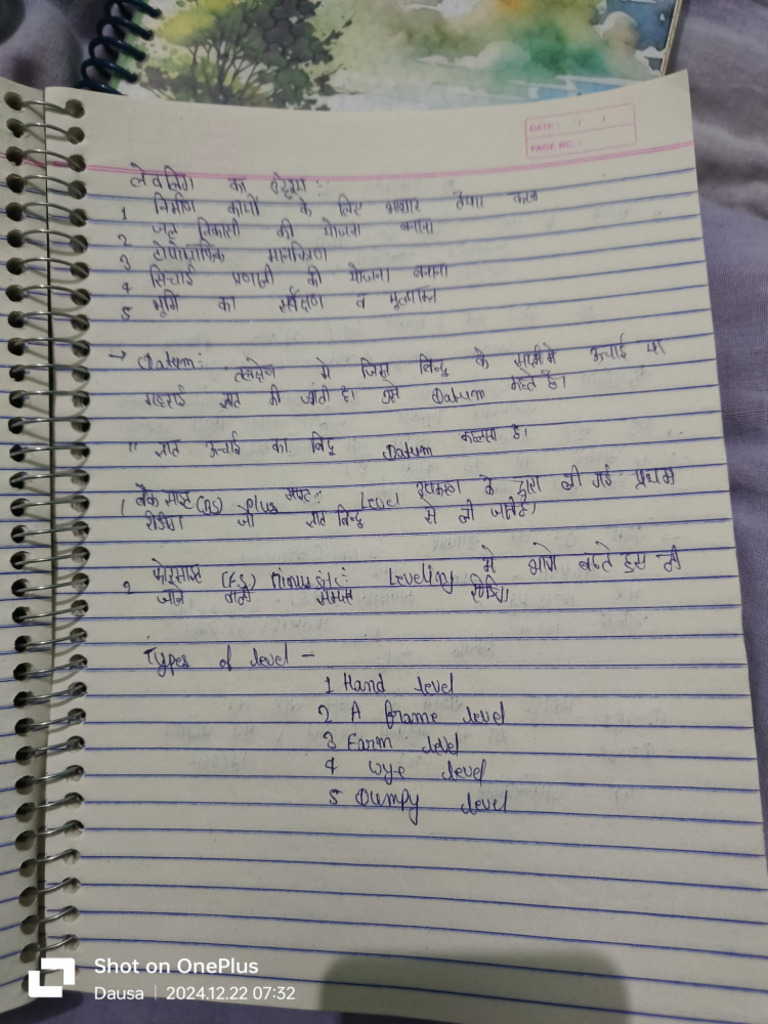 DATE: / /
PAGE NO.:
लेवलिंग का उद्देश्य:
1 निर्माण कार्यो के लिए आधार तैयार करना
2 जल निकासी की योजना बनाना
3 टोपोग्राफिक मानचित्रण
4 सिंचाई प्रणाली की योजना बनाना
5 भूमि का सर्वेक्षण व मूल्यांकन
→ Datum: में जिस बिन्दु के ऊचाई या
गहराई ज्ञात की जाती है। उसे Datum कहते है।
" ज्ञात ऊचाई का बिंदू Datum कहलाता है।
1 बैक साइट (BS) plus साइट: Level उपकरण के द्वारा ली गई प्रथम
रीडिंग। जो ज्ञात बिन्दु से ली जाती है।
2 फोरसाइट (F.S) minus Leveling मे आगे बढते हुए ली
जाने वाली समस्त रीडिंग।
Types of level -
1 Hand level
2 A frame level
3 Farm level
4 wye level
5 Dumpy level
Shot on OnePlus
Dausa | 2024.12.22 07:32